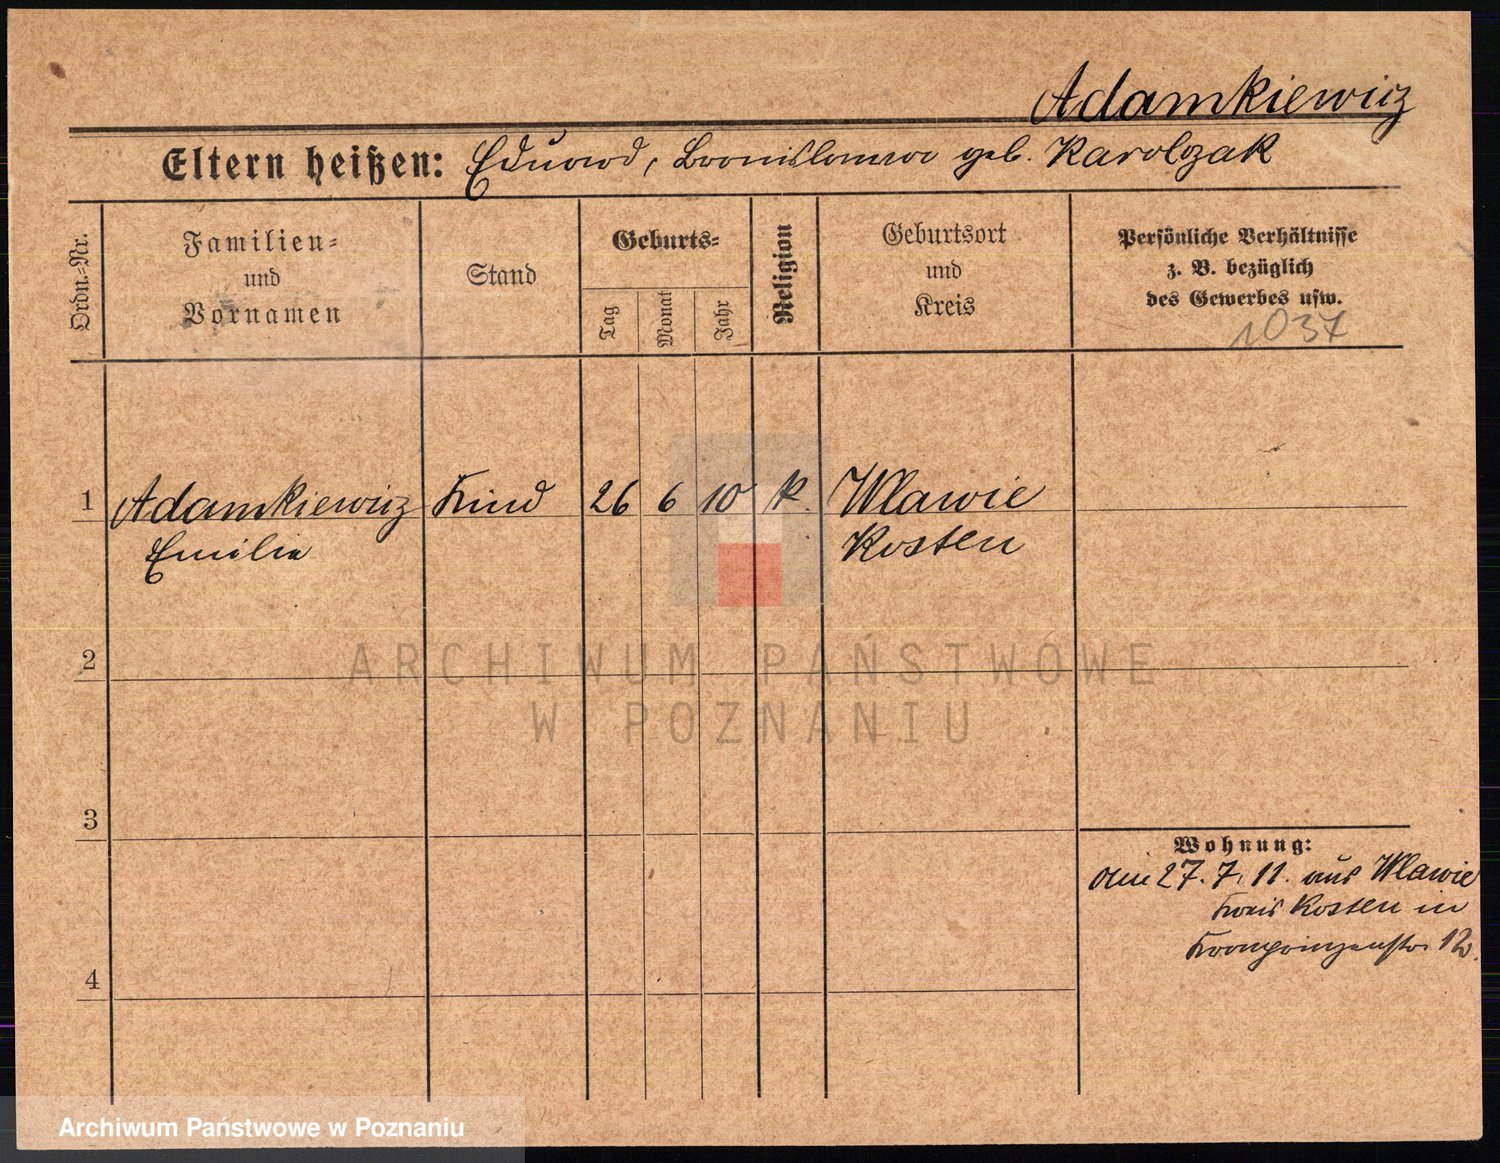 Adamkiewicz
Eltern heißen: Eduard, Bronislawa geb. Karolczak
Ordn.-Nr.
Familien-
und
Vornamen
Stand
Geburts-
Tag
Monat
Jahr
Religion
Geburtsort
und
Kreis
Persönliche Verhältnisse
z. B. bezüglich
des Gewerbes usw.
1037
1 Adamkiewicz Kind 26 6 10 k. Wlawie
Emilie Kosten
2
ARCHIWUM PAŃSTWOWE
W POZNANIU
3
Wohnung:
am 27. 7. 11. aus Wlawie
Kreis Kosten in
4 Kronprinzenstr. 12.
Archiwum Państwowe w Poznaniu